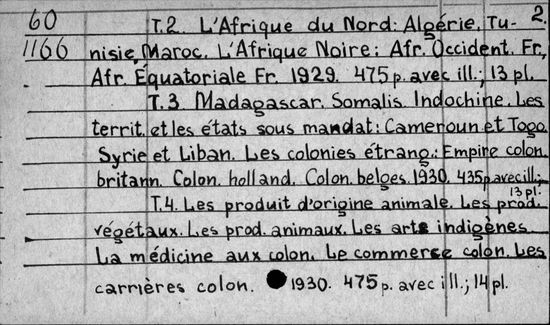 2.
60 T.2. L'Afrique du Nord: Algérie. Tu-
1166 nisie, Maroc. L'Afrique Noire: Afr. Occident. Fr.,
Afr. Équatoriale Fr. 1929. 475 p. avec ill.; 13 pl.
T.3. Madagascar. Somalis. Indochine. Les
territ. et les états sous mandat: Cameroun et Togo.
Syrie et Liban. Les colonies étrang.: Empire colon.
britann. Colon. holland. Colon. belges. 1930. 435 p. avec ill.;
13 pl.
T.4. Les produit d'origine animale. Les prod.
végétaux. Les prod. animaux. Les arts indigènes.
La médicine aux colon. Le commerce colon. Les
carrières colon. 1930. 475 p. avec ill.; 14 pl.